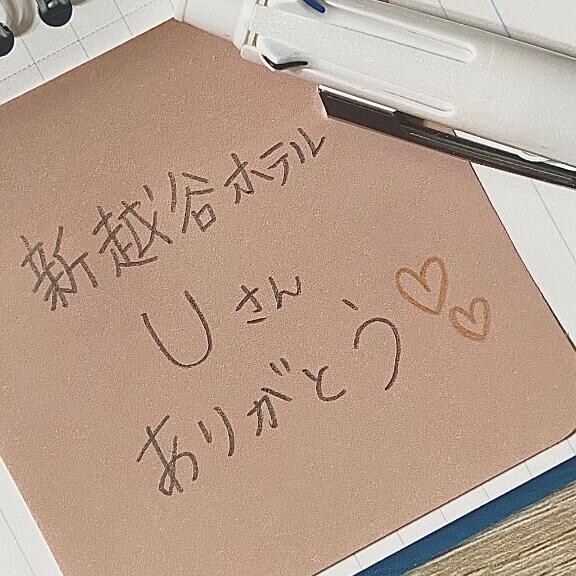 新越谷ホテル
Uさん
ありがとう